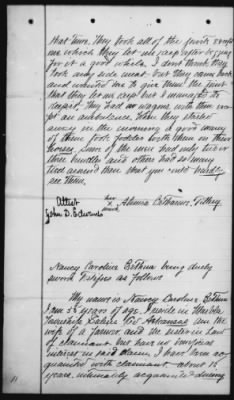 that time. They took all of the fruits except
one which they let me keep after begging
for it a good while. I dont think they
took any side meat but they came back
and wanted me to give them the
they let me keep but I managed to
keep it. They had no wagons with them except
an ambulance. When they started
away on the evening a good many
of them took fodder with them on their
horses. Some of the men had only two or
three bundles and others had so many
tied around them that you could hardly
see them.
Attest
her
x
mark
John D. Edwards
Nancy Caroline Bethune being duly
sworn deposes as follows
My name is Nancy Caroline Bethune
I am 55 years of age. I reside in
Township Saline Co Arkansas am the
wife of a farmer and the sister in law
of claimant but have no beneficial
interest in said claim. I have been ac-
quainted with claimant about 15
years, intimately acquainted during
11